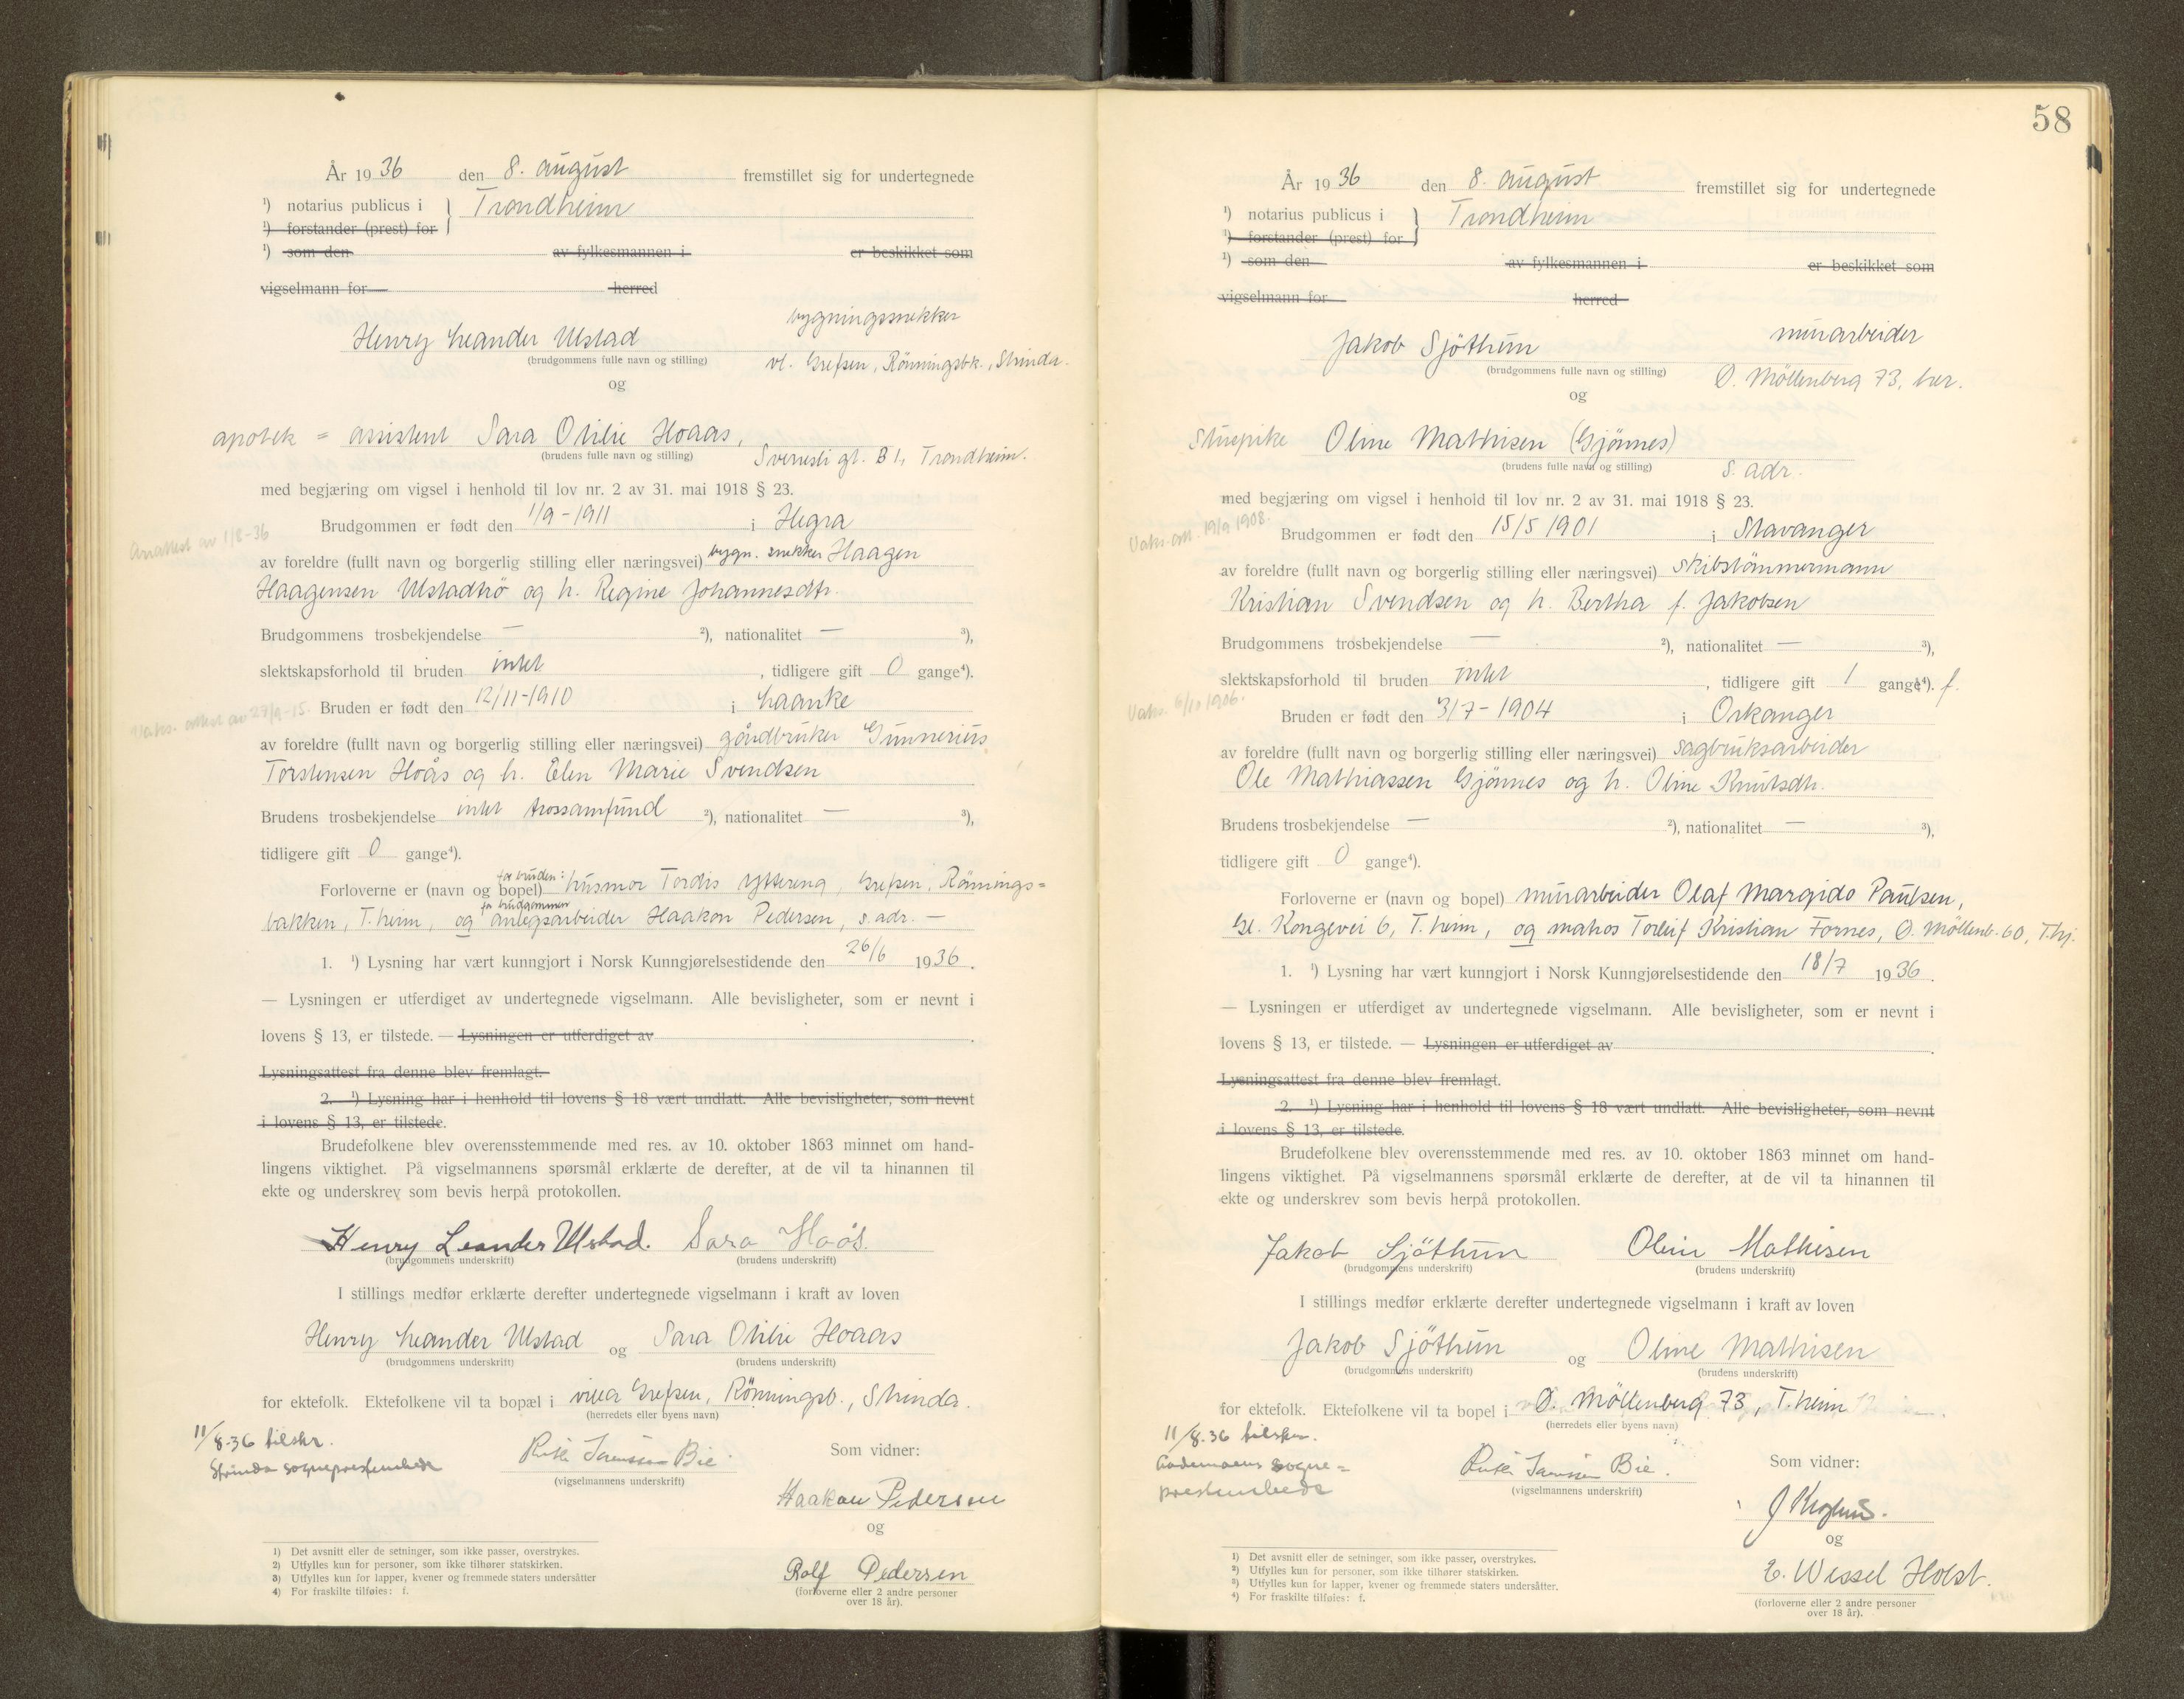 År 19 36 den 8. august fremstillet sig for undertegnede
¹) notarius publicus i } Trondheim
¹) forstander (prest) for
¹) som den av fylkesmannen i er beskikket som
vigselmann for herred
bygningssnekker
Henry Leander Ulstad
(brudgommens fulle navn og stilling)
vl. Grefsen, Rönningsbk., Strinda.
og
apotek = assistent Sara Otilie Hoaas,
(brudens fulle navn og stilling)
Sverresli gt. B 1, Trondheim.
med begjæring om vigsel i henhold til lov nr. 2 av 31. mai 1918 § 23.
Brudgommen er født den 1/9-1911 i Hegra
av 1/8-36
av foreldre (fullt navn og borgerlig stilling eller næringsvei) bygn. snekker Haagen
Haagensen Ulstadtrö og h. Regine Johannesdtr.
Brudgommens trosbekjendelse — ²), nationalitet — ³),
slektskapsforhold til bruden intet, tidligere gift 0 gange⁴).
Vaks. attest av 29/9-15.
Bruden er født den 12/11-1910 i Laanke
av foreldre (fullt navn og borgerlig stilling eller næringsvei) gårdbruker Gunnerius
Torstensen Hoås og h. Elen Marie Svendsen
Brudens trosbekjendelse intet trossamfund ²), nationalitet — ³),
tidligere gift 0 gange⁴).
for bruden:
Forloverne er (navn og bopel) husmor Tordis Yttereng, Grefsen, Rönnings=
for brudgommen
bakken, T.heim, og anlegsarbeider Haakon Pedersen, s. adr. —
1. ¹) Lysning har vært kunngjort i Norsk Kunngjørelsestidende den 26/6 1936.
— Lysningen er utferdiget av undertegnede vigselmann. Alle bevisligheter, som er nevnt i
lovens § 13, er tilstede. — Lysningen er utferdiget av .
Lysningsattest fra denne blev fremlagt.
2. ¹) Lysning har i henhold til lovens § 18 vært undlatt. Alle bevisligheter, som nevnt
i lovens § 13, er tilstede.
Brudefolkene blev overensstemmende med res. av 10. oktober 1863 minnet om hand-
lingens viktighet. På vigselmannens spørsmål erklærte de derefter, at de vil ta hinannen til
ekte og underskrev som bevis herpå protokollen.
Henry Leander Ulstad. Sara Hoås.
(brudgommens underskrift) (brudens underskrift)
I stillings medfør erklærte derefter undertegnede vigselmann i kraft av loven
Henry Leander Ulstad og Sara Otilie Hoaas
(brudgommens underskrift) (brudens underskrift)
for ektefolk. Ektefolkene vil ta bopæl i villa Grefsen, Rönningsb., Strinda.
(herredets eller byens navn)
11/8-36 tilskr.
Strinda sogneprestembede
Bie.
(vigselmannens underskrift)
Som vidner:
Haakon Pedersen
og
Rolf Pedersen
(forloverne eller 2 andre personer
over 18 år).
1) Det avsnitt eller de setninger, som ikke passer, overstrykes.
2) Utfylles kun for personer, som ikke tilhører statskirken.
3) Utfylles kun for lapper, kvener og fremmede staters undersåtter
4) For fraskilte tilføies: f.
58
År 19 36 den 8. august fremstillet sig for undertegnede
¹) notarius publicus i } Trondheim
¹) forstander (prest) for
¹) som den av fylkesmannen i er beskikket som
vigselmann for herred
murarbeider
Jakob Sjöthun
(brudgommens fulle navn og stilling)
Ö. Möllenberg 73, her.
og
Stuepike Oline Mathisen (Gjönnes)
(brudens fulle navn og stilling)
s. adr.
med begjæring om vigsel i henhold til lov nr. 2 av 31. mai 1918 § 23.
Vaks. att. 19/9 1908.
Brudgommen er født den 15/5 1901 i Stavanger
av foreldre (fullt navn og borgerlig stilling eller næringsvei) skibstömmermann
Kristian Svendsen og h. Bertha f. Jakobsen
Brudgommens trosbekjendelse — ²), nationalitet — ³),
slektskapsforhold til bruden intet, tidligere gift 1 gange⁴). f.
Vaks. 6/10 1906.
Bruden er født den 3/7-1904 i Orkanger
av foreldre (fullt navn og borgerlig stilling eller næringsvei) sagbruksarbeider
Ole Mathiassen Gjönnes og h. Oline Knutsdtr.
Brudens trosbekjendelse — ²), nationalitet — ³),
tidligere gift 0 gange⁴).
Forloverne er (navn og bopel) murarbeider Olaf Margido Paulsen,
Gl. Kongevei 6, T.heim, og matros Torleif Kristian Fornes, Ö. Möllenb. 60, T.hj.
1. ¹) Lysning har vært kunngjort i Norsk Kunngjørelsestidende den 18/7 1936.
— Lysningen er utferdiget av undertegnede vigselmann. Alle bevisligheter, som er nevnt i
lovens § 13, er tilstede. — Lysningen er utferdiget av .
Lysningsattest fra denne blev fremlagt.
2. ¹) Lysning har i henhold til lovens § 18 vært undlatt. Alle bevisligheter, som nevnt
i lovens § 13, er tilstede.
Brudefolkene blev overensstemmende med res. av 10. oktober 1863 minnet om hand-
lingens viktighet. På vigselmannens spørsmål erklærte de derefter, at de vil ta hinannen til
ekte og underskrev som bevis herpå protokollen.
Jakob Sjöthun Oline Mathisen
(brudgommens underskrift) (brudens underskrift)
I stillings medfør erklærte derefter undertegnede vigselmann i kraft av loven
Jakob Sjöthun og Oline Mathisen
(brudgommens underskrift) (brudens underskrift)
for ektefolk. Ektefolkene vil ta bopel i Ö. Möllenberg 73, T.heim
(herredets eller byens navn)
11/8-36 tilskr.
Lademoens sogne=
prestembede
Bie.
(vigselmannens underskrift)
Som vidner:
og
E. Wessel Holst.
(forloverne eller 2 andre personer
over 18 år).
¹) Det avsnitt eller de setninger, som ikke passer, overstrykes.
²) Utfylles kun for personer, som ikke tilhører statskirken.
³) Utfylles kun for lapper, kvener og fremmede staters undersåtter.
⁴) For fraskilte tilføies: f.